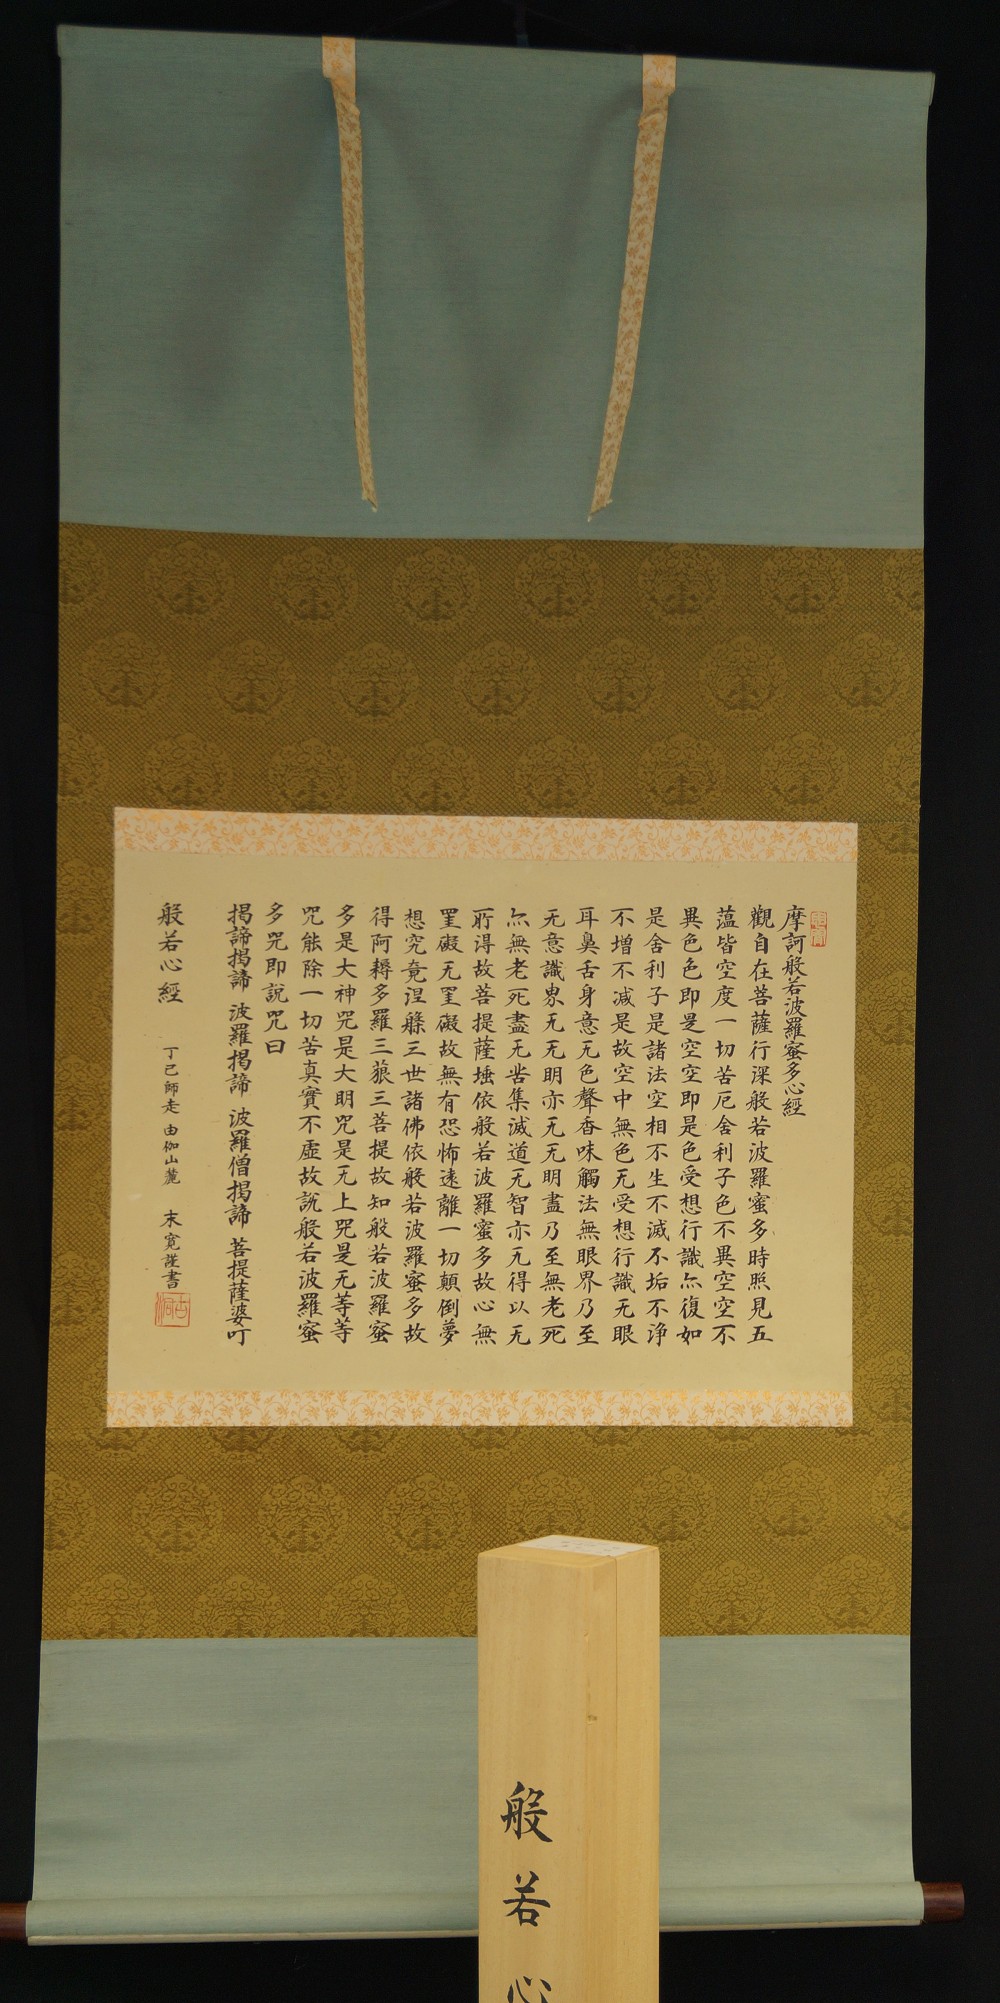 摩訶般若波羅蜜多心經
觀自在菩薩行深般若波羅蜜多時照見五
蕰皆空度一切苦厄舍利子色不異空空不
異色色即是空空即是色受想行識亦復如
是舍利子是諸法空相不生不滅不垢不淨
不增不減是故空中無色无受想行識无眼
耳鼻舌身意无色聲香味觸法無眼界乃至
无意識界无无明亦无无明盡乃至無老死
亦無老死盡无苦集滅道无智亦无得以无
所得故菩提薩埵依般若波羅蜜多故心無
罣礙无罣礙故無有恐怖遠離一切顛倒夢
想究竟涅槃三世諸佛依般若波羅蜜多故
得阿耨多羅三藐三菩提故知般若波羅蜜
多是大神咒是大明咒是无上咒是无等等
咒能除一切苦真實不虛故說般若波羅蜜
多咒即說咒曰
揭諦揭諦 波羅揭諦 波羅僧揭諦 菩提薩婆吖
般若心經 丁己師走 由伽山麓 末寛謹書
般若心